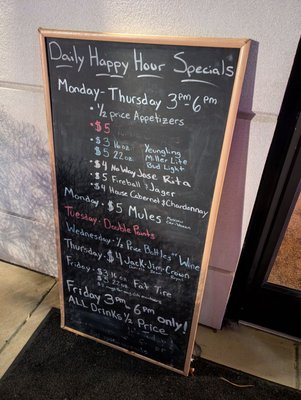 Daily Happy Hour Specials
Monday-Thursday 3pm-6pm
·½ price Appetizers
·$5
·$3 16oz Yeungling
·$5 22oz Miller Lite
Bud Light
·$4 No Way Jose Rita
·$5 Fireball & Jager
·$4 House Cabernet & Chardonnay
Monday - $5 Mules
Tuesday - Double Points
Wednesday - ½ Price Bottles Wine
Thursday - $4 Jack-Jim-Crown
Friday - $3 16oz Fat Tire
$5 22oz
Friday 3pm-6pm only!
ALL DRINKS ½ Price